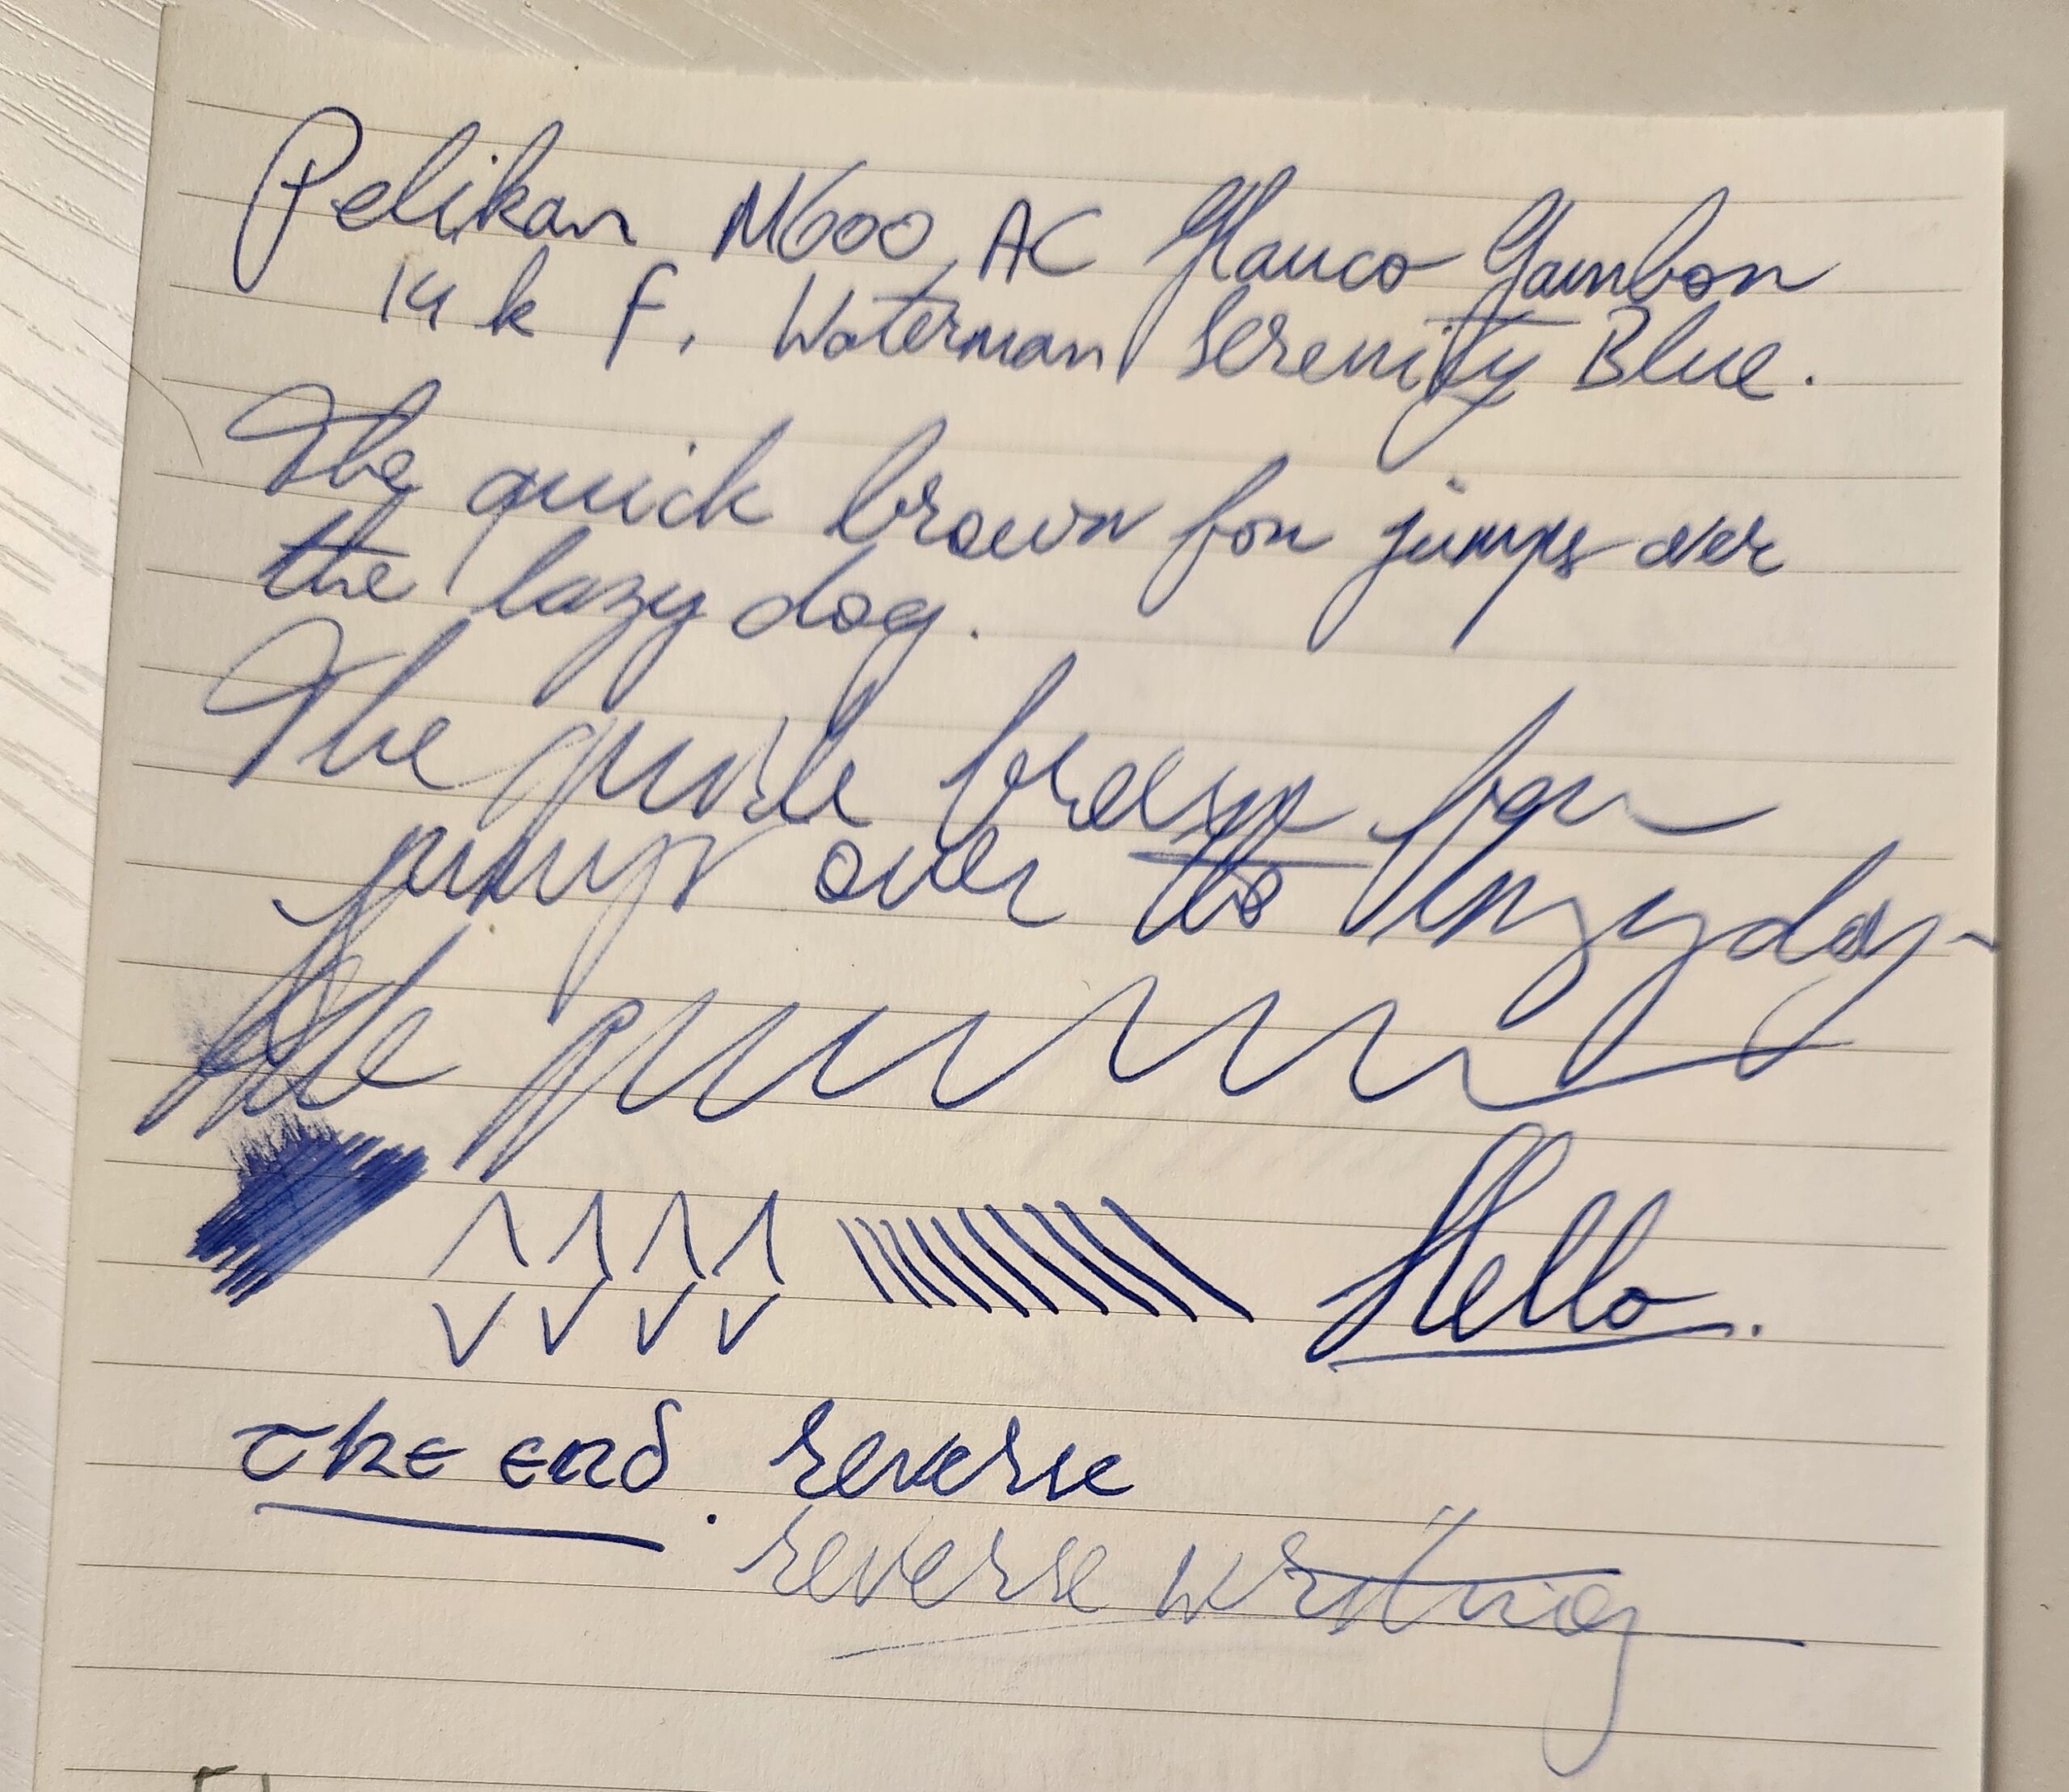 Pelikan M600, AC Glauco Gambon
14 k F, Waterman Serenity Blue.
The quick brown fox jumps over
the lazy dog.
The quick brown fox
jumps over the lazy dog
the
Hello.
the end. reverse
reverse writing